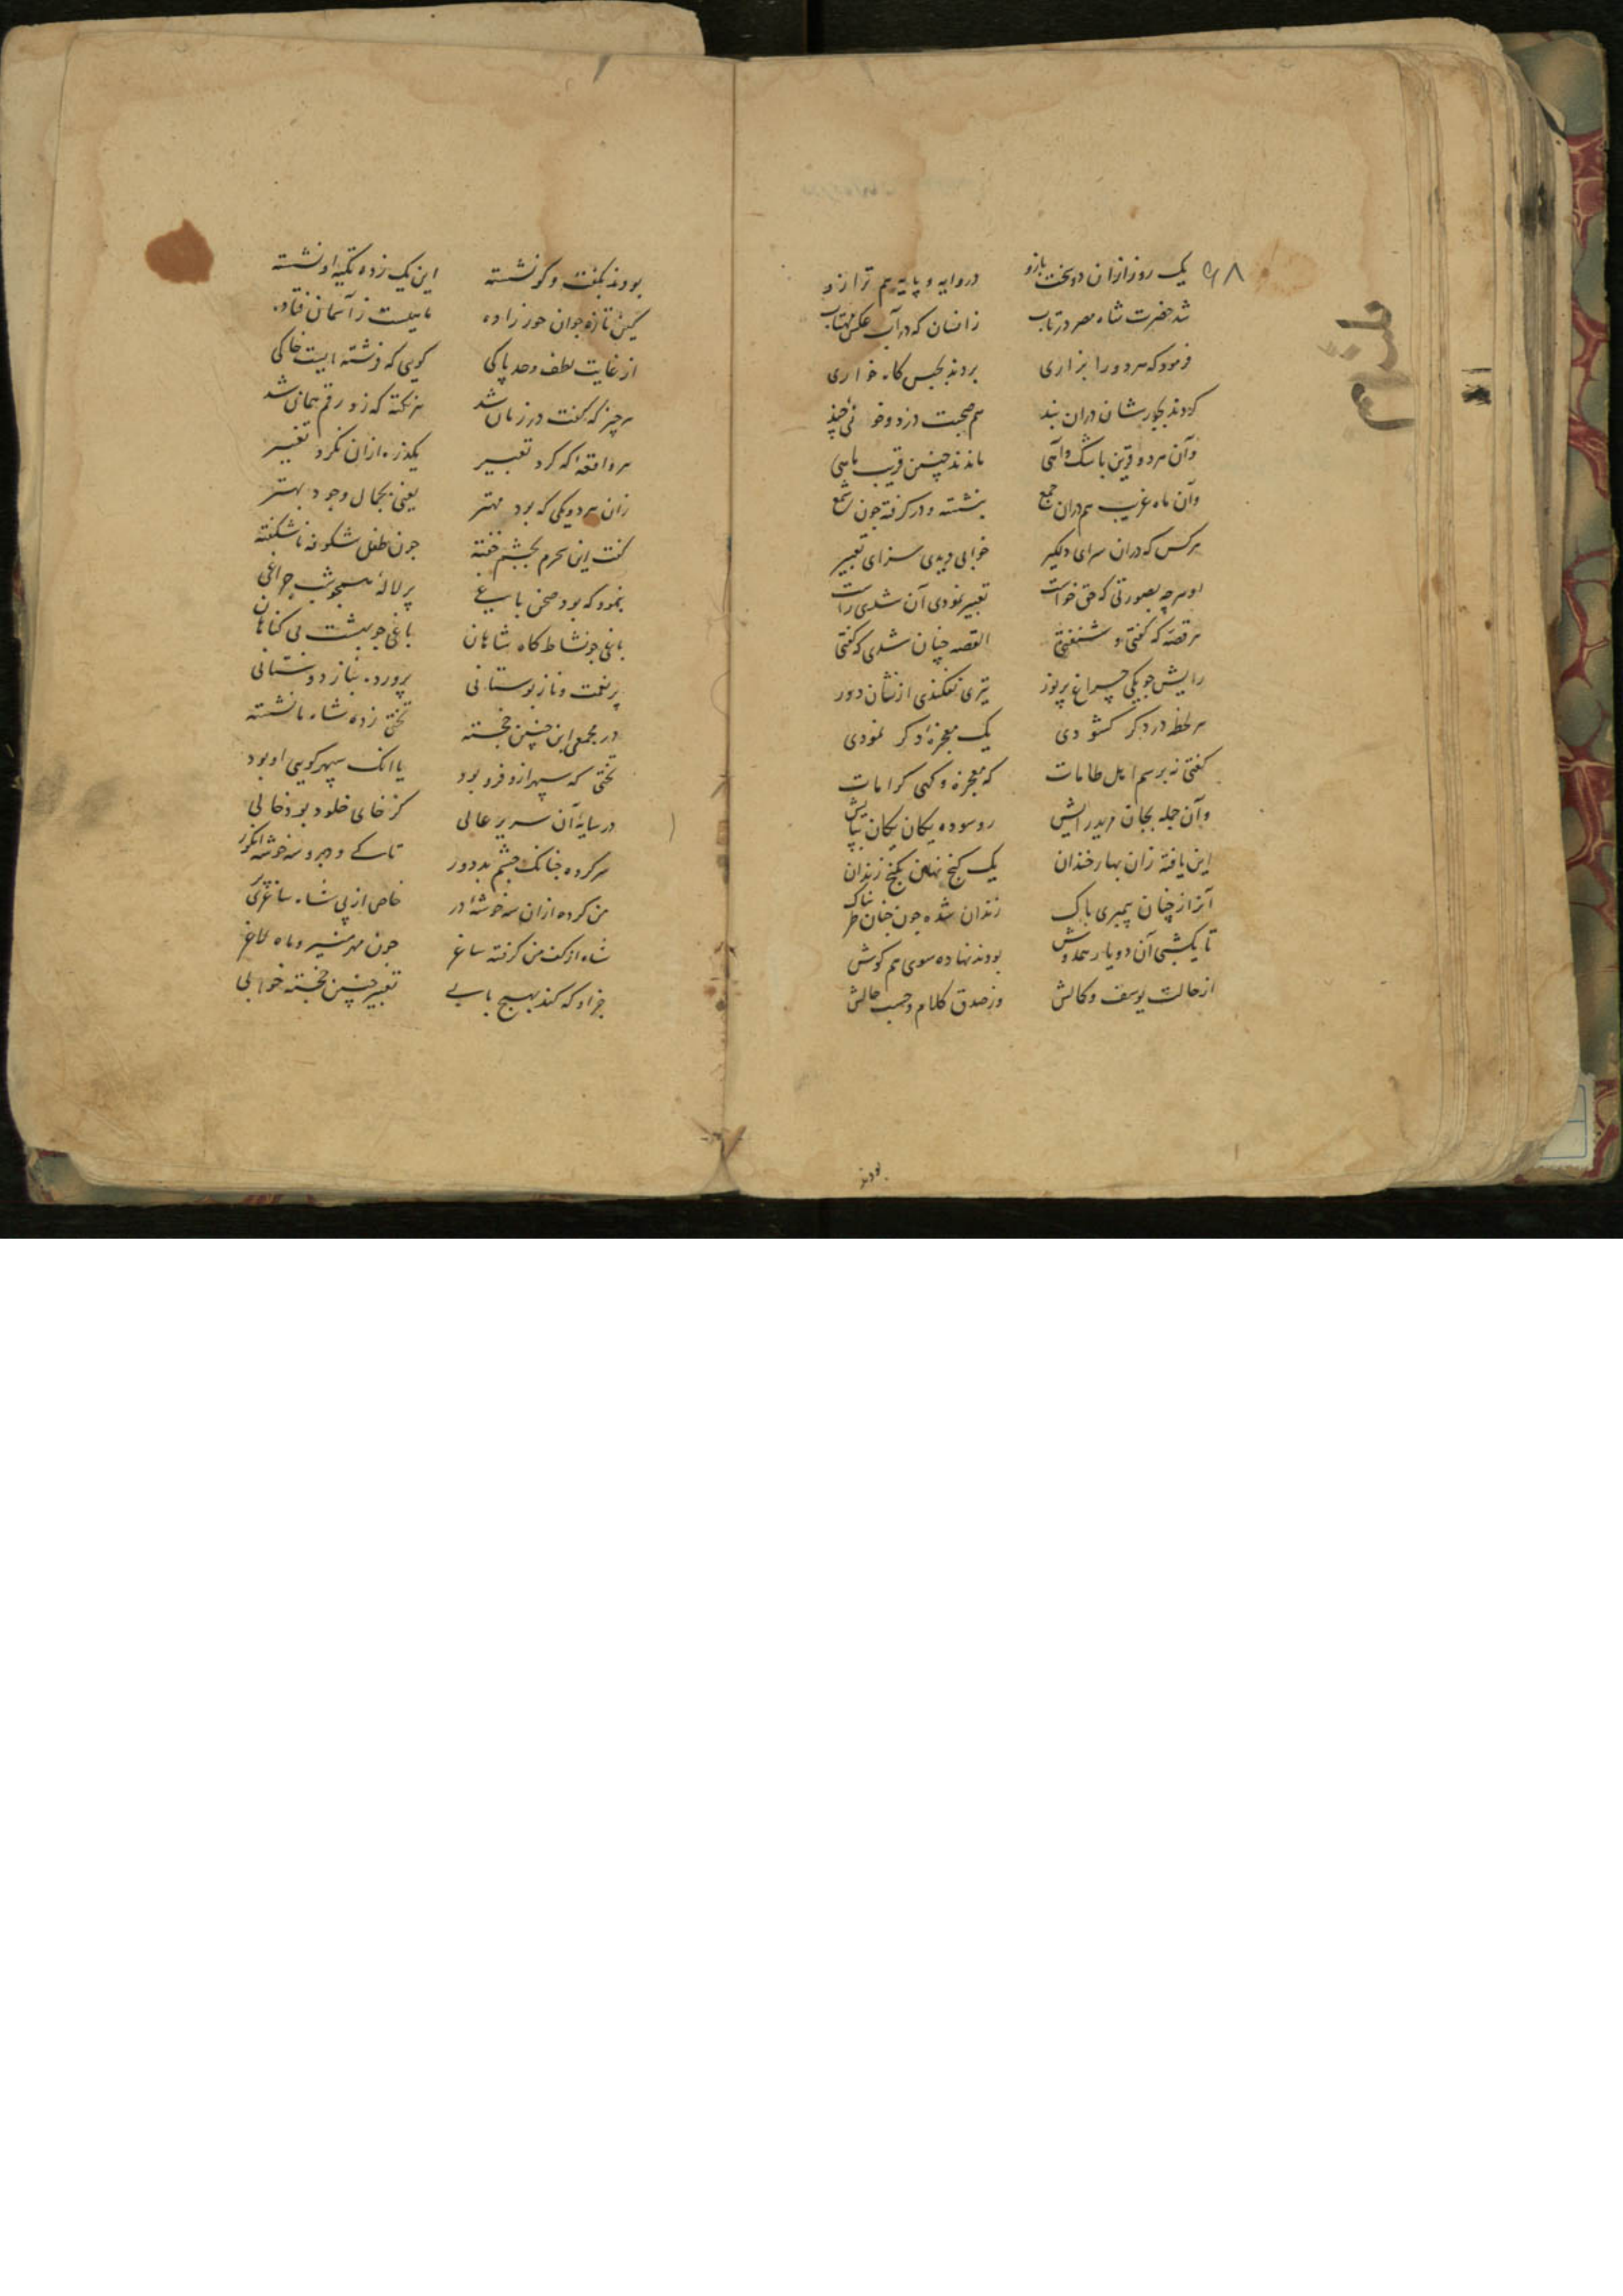 ۶۸
یک روز ازان دو سخت بازو در وایه و پایه هم ترازو
شد حضرت شاه مصر در تاب زانسان که در آب عکس مهتاب
فرمود که هر دو را بزاری بردند بحبس کاه خواری
کردند بجار شان دران بند هم صحبت دزد و خونی چند
وآن هر دو قرین باشک و آهی ماندند چنین قریب ماهی
وآن ماه غریب هم دران جمع بنشسته و در گرفته چون شمع
هر کس که دران سرای دلگیر خوابی دیدی سزای تعبیر
او هر چه بصورتی که حق خواست تعبیر نمودی آن شدی راست
هر قصه که گفتی و شنفتی القصه چنان شدی که گفتی
رایش چو یکی چراغ پر نور تیری نفکندی از نشان دور
هر لحظه در دگر گشودی یک معجزه دگر نمودی
گفتی نه برسم اهل طامات که معجزه و گهی کرامات
وآن جمله بجان مرید رایش رو سوده یکان یکان بپایش
این یافته زان بهار خندان یک گنج نهان بکنج زندان
آنرا ز چنان پیمبری پاک زندان شده چون جنان طربناک
تا یکشبی آن دو یار همدوش بودند نهاده سوی هم گوش
از حالت یوسف و کمالش وز صدق کلام و حسب حالش
بودند
بودند بگفت و گو نشسته این یک زده تکیه او نشسته
کین تازه جوان حور زاده ماهیست ز آسمان فتاده
از غایت لطف و حد پاکی گویی که فرشته ایست خاکی
هر چیز که گفت در زمان شد هر نکته که زد رقم همان شد
هر واقعه را که کرد تعبیر یکذره ازان نکرد تغییر
زان هر دو یکی که بود مهتر یعنی بجمال وجود بهتر
گفت این سحرم بچشم خفته چون طفل شکوفه ناشکفته
بنمود که بود صحن باغی پر لاله همچو شب چراغی
باغی چو نشاط گاه شاهان باغی چو بهشت بی گناهان
پر نعمت و ناز بوستانی پرورده بناز دوستانی
در مجمعی این چنین خجسته تختی زده شاه ما نشسته
تختی که سپهر ازو فرو بود یا انک سپهر گویی او بود
در سایه آن سریر عالی کز خای خلود بود خالی
سر کرده چنانک چشم بد دور تاکی و درو سه خوشه انگور
من کرده ازان سه خوشه در خاص از پی شاه ساغری پر
شاه از کف من گرفته ساغر چون مهر منیر و ماه لاغر
جز او که کند بهیچ بابی تعبیر چنین خجسته خوابی